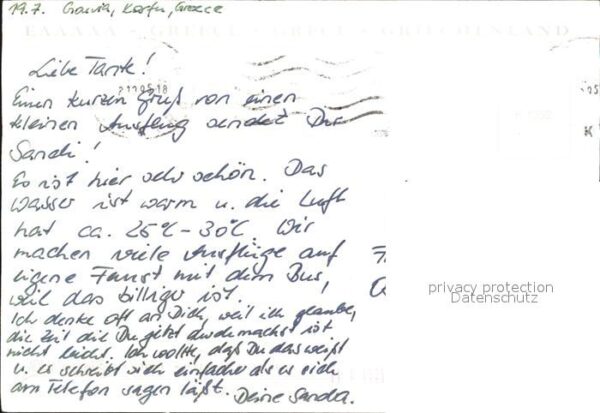 19.7. Gouvia, Korfu, Greece
GREECE GRECE GRIECHENLAND
Liebe Tante!
Einen kurzen Gruß von einen
kleinen Ausflug sendet Dir
Sandi!
Es ist hier sehr schön. Das
Wasser ist warm u. die Luft
hat ca. 25°C - 30°C. Wir
machen viele Ausflüge auf
eigene Faust mit dem Bus,
weil das billiger ist.
Ich denke oft an Dich, weil ich glaube,
die Zeit die Du jetzt durchmachst ist
nicht leicht. Ich wollte, daß Du das weißt
u. es schreibt sich einfacher als es sich
am Telefon sagen läßt. Deine Sandra.
privacy protection
Datenschutz